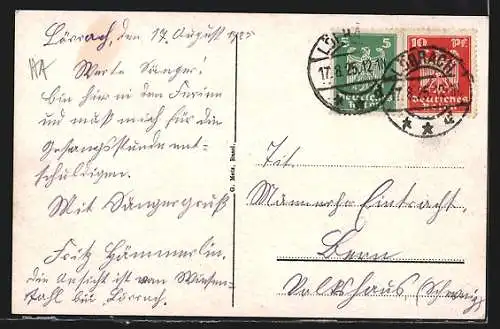 Lörrach, den 17. August 1925
Werte Sänger!
bin hier in den Ferien
und muß mich für die
Gesangstunde ent-
schuldigen.
Mit Sängergruß
Fritz Hämmerlin.
die Ansicht ist vom Wiesen-
tahl bei Lörrach.
G. Metz, Basel.
5 5
Deutsches Reich
10 Pf.
Deutsches
LÖRRACH
17.8.25. 12-
LÖRRACH
17.8.25. 12-
Tit.
Männerchor Eintracht,
Bern
Volkshaus (Schweiz)